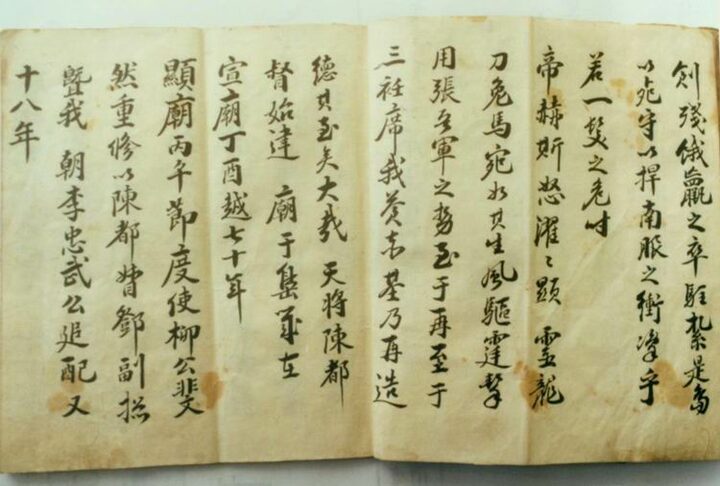 創殘餓羸之卒駐紮是島
以死守以捍南服之衝凜乎
若一髮之危時
帝赫斯怒濯〻顯 靈龍
刀兔馬宛如其生風驅霆擊
用張吾軍之勢至于再至于
三衽席我蒼赤基乃再造
德其至矣大哉 天將陳都
督始建 廟于島寔在
宣廟丁酉越七十年
顯廟丙午節度使柳公斐
然重修以陳都督鄧副摠
暨我 朝李忠武公追配又
十八年